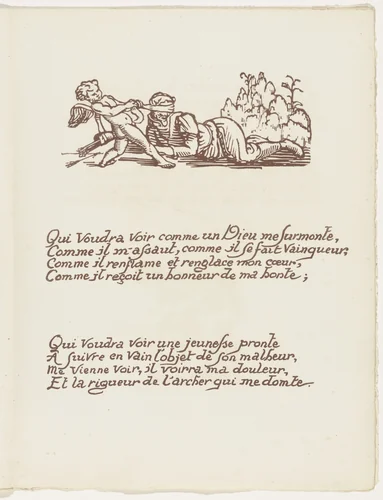 Qui voudra voir comme un Dieu me surmonte,
Comme il m'assaut, comme il se fait vainqueur,
Comme il renflame et renglace mon cœur,
Comme il reçoit un honneur de ma honte ;
Qui voudra voir une jeunesse pronte
A suivre en vain l'objet de son malheur,
Me vienne voir, il voirra ma douleur,
Et la rigueur de l'archer qui me domte.